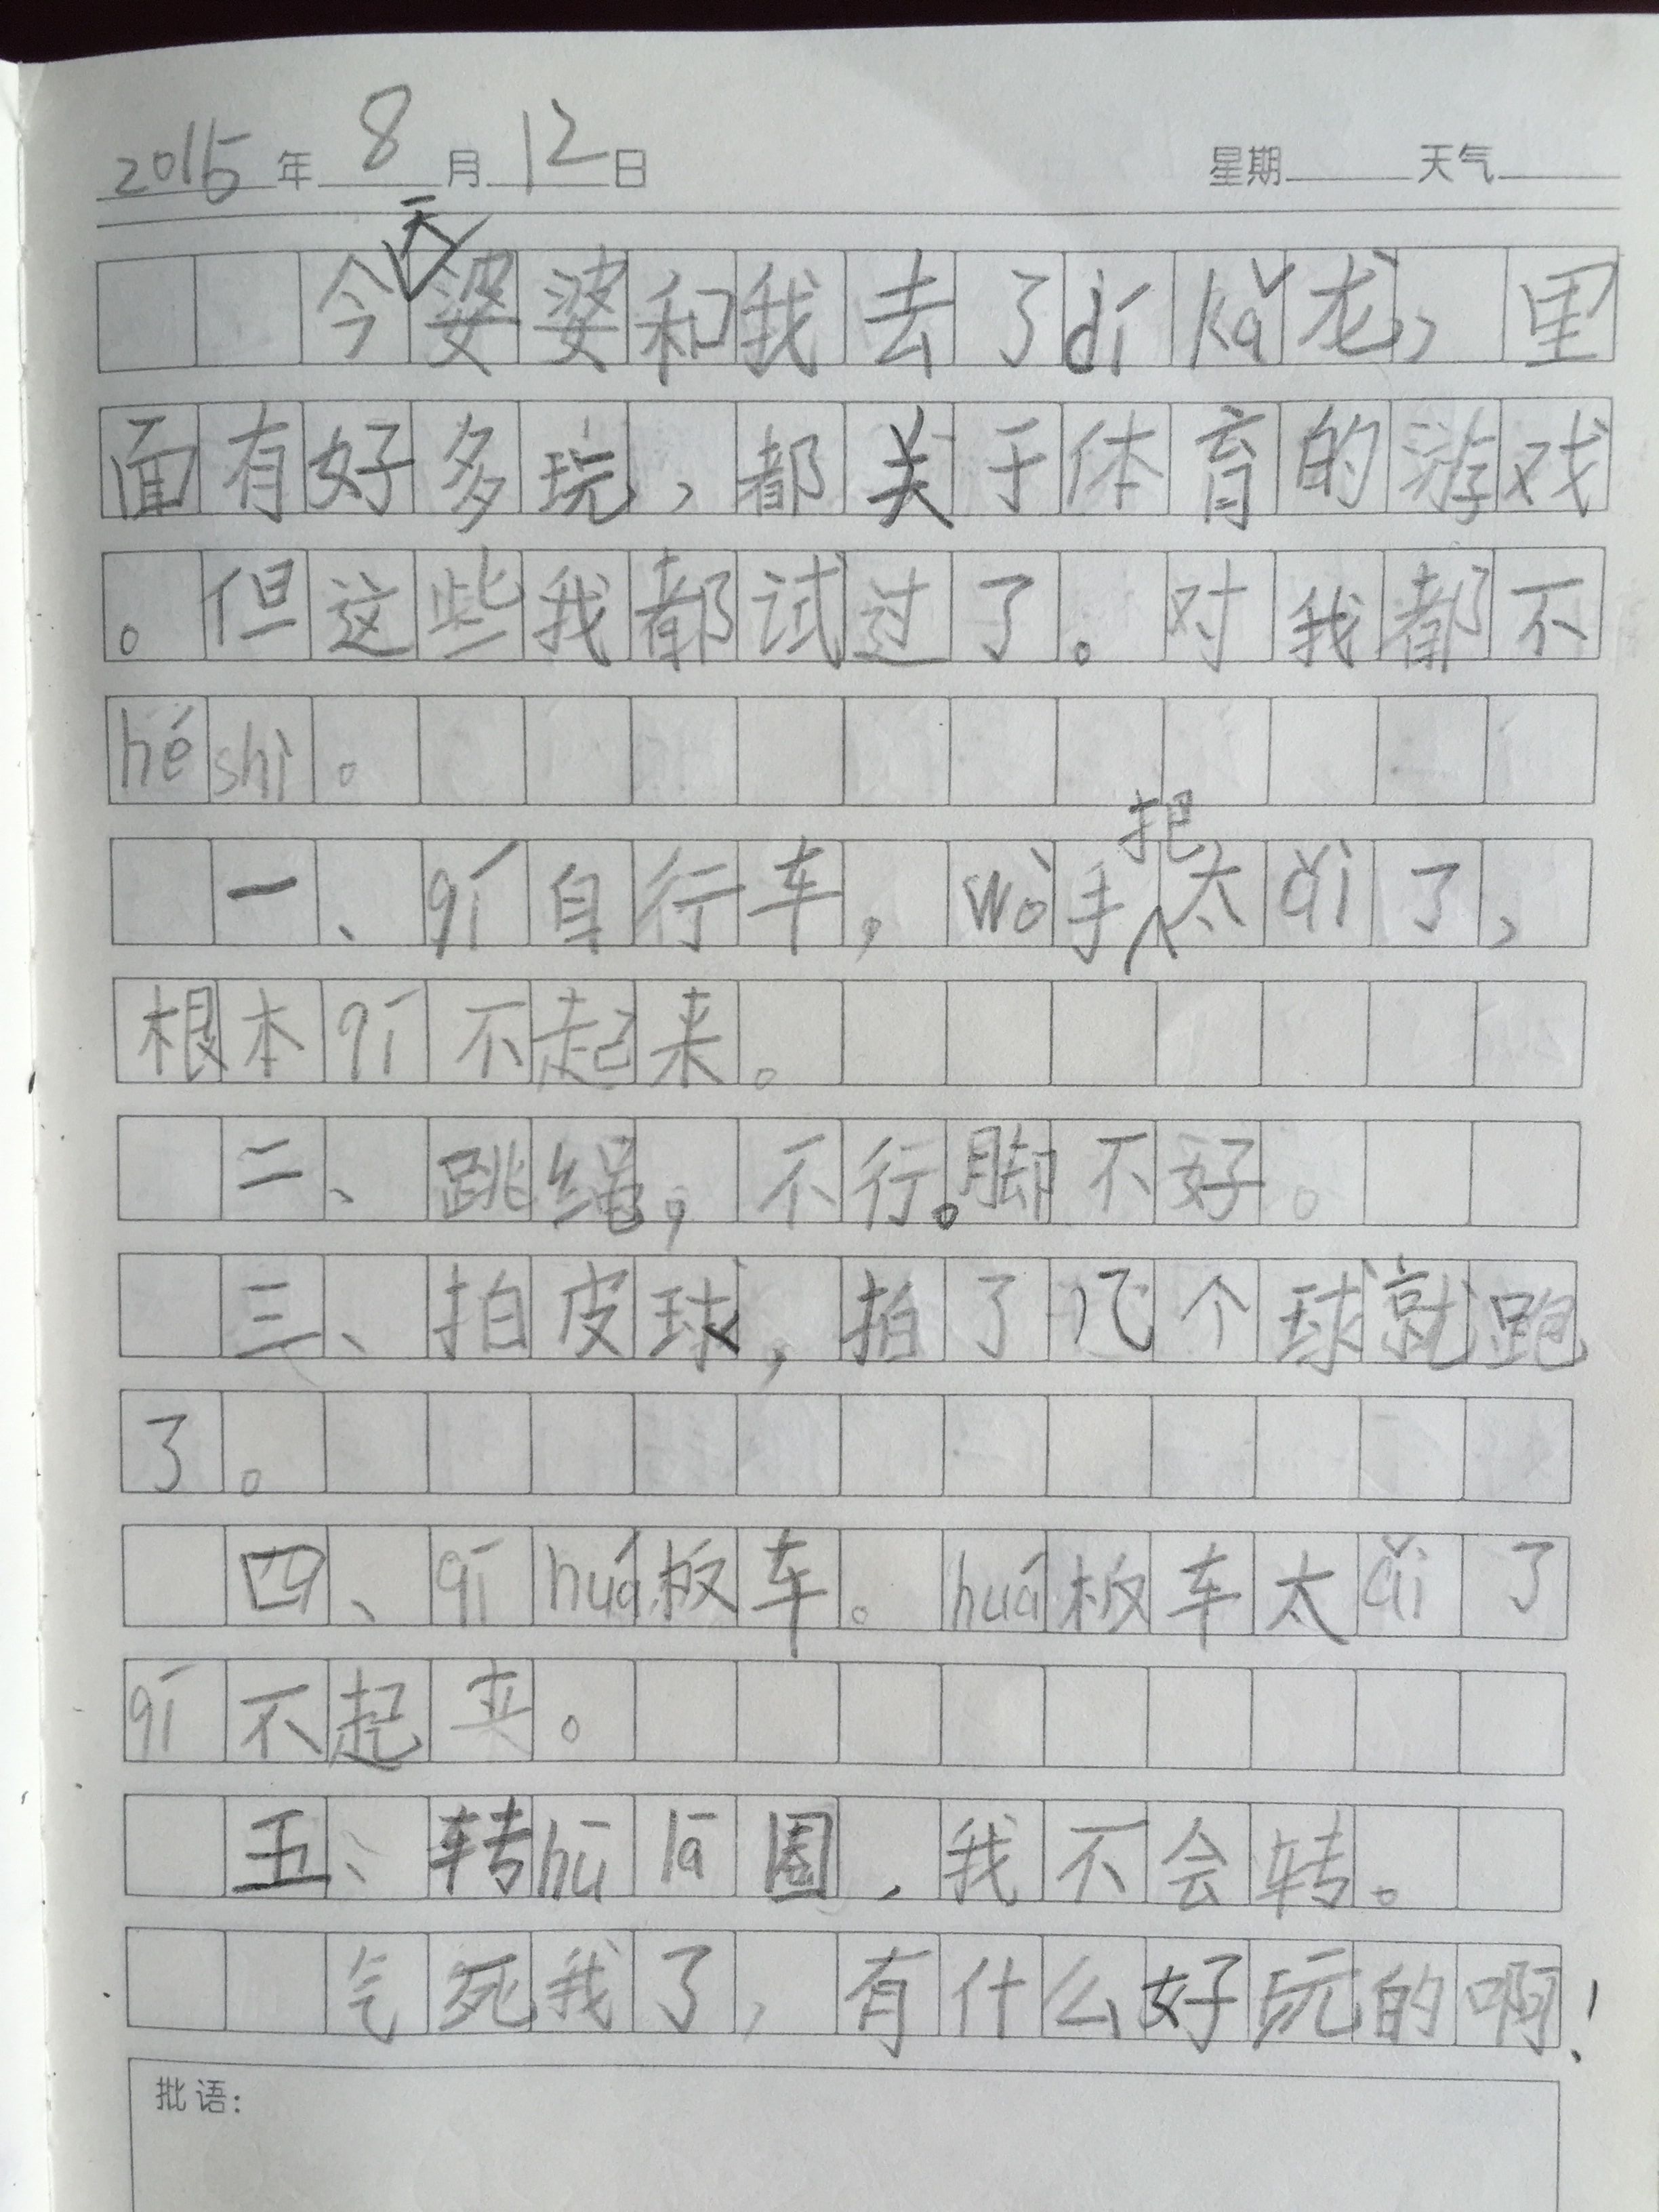 2015年8月12日 星期 天气
今天婆婆和我去了dí kǎ龙，里
面有好多玩，都关于体育的游戏
。但这些我都试过了。对我都不
hé shì。
一、qí自行车。wò手把太ǎi了，
根本qí不起来。
二、跳绳，不行。脚不好。
三、拍皮球，拍了几个球就跑
了。
四、qí huá板车。huá板车太ǎi了
qí不起来。
五、转hū lā圈，我不会转。
气死我了，有什么好玩的啊！
批语：